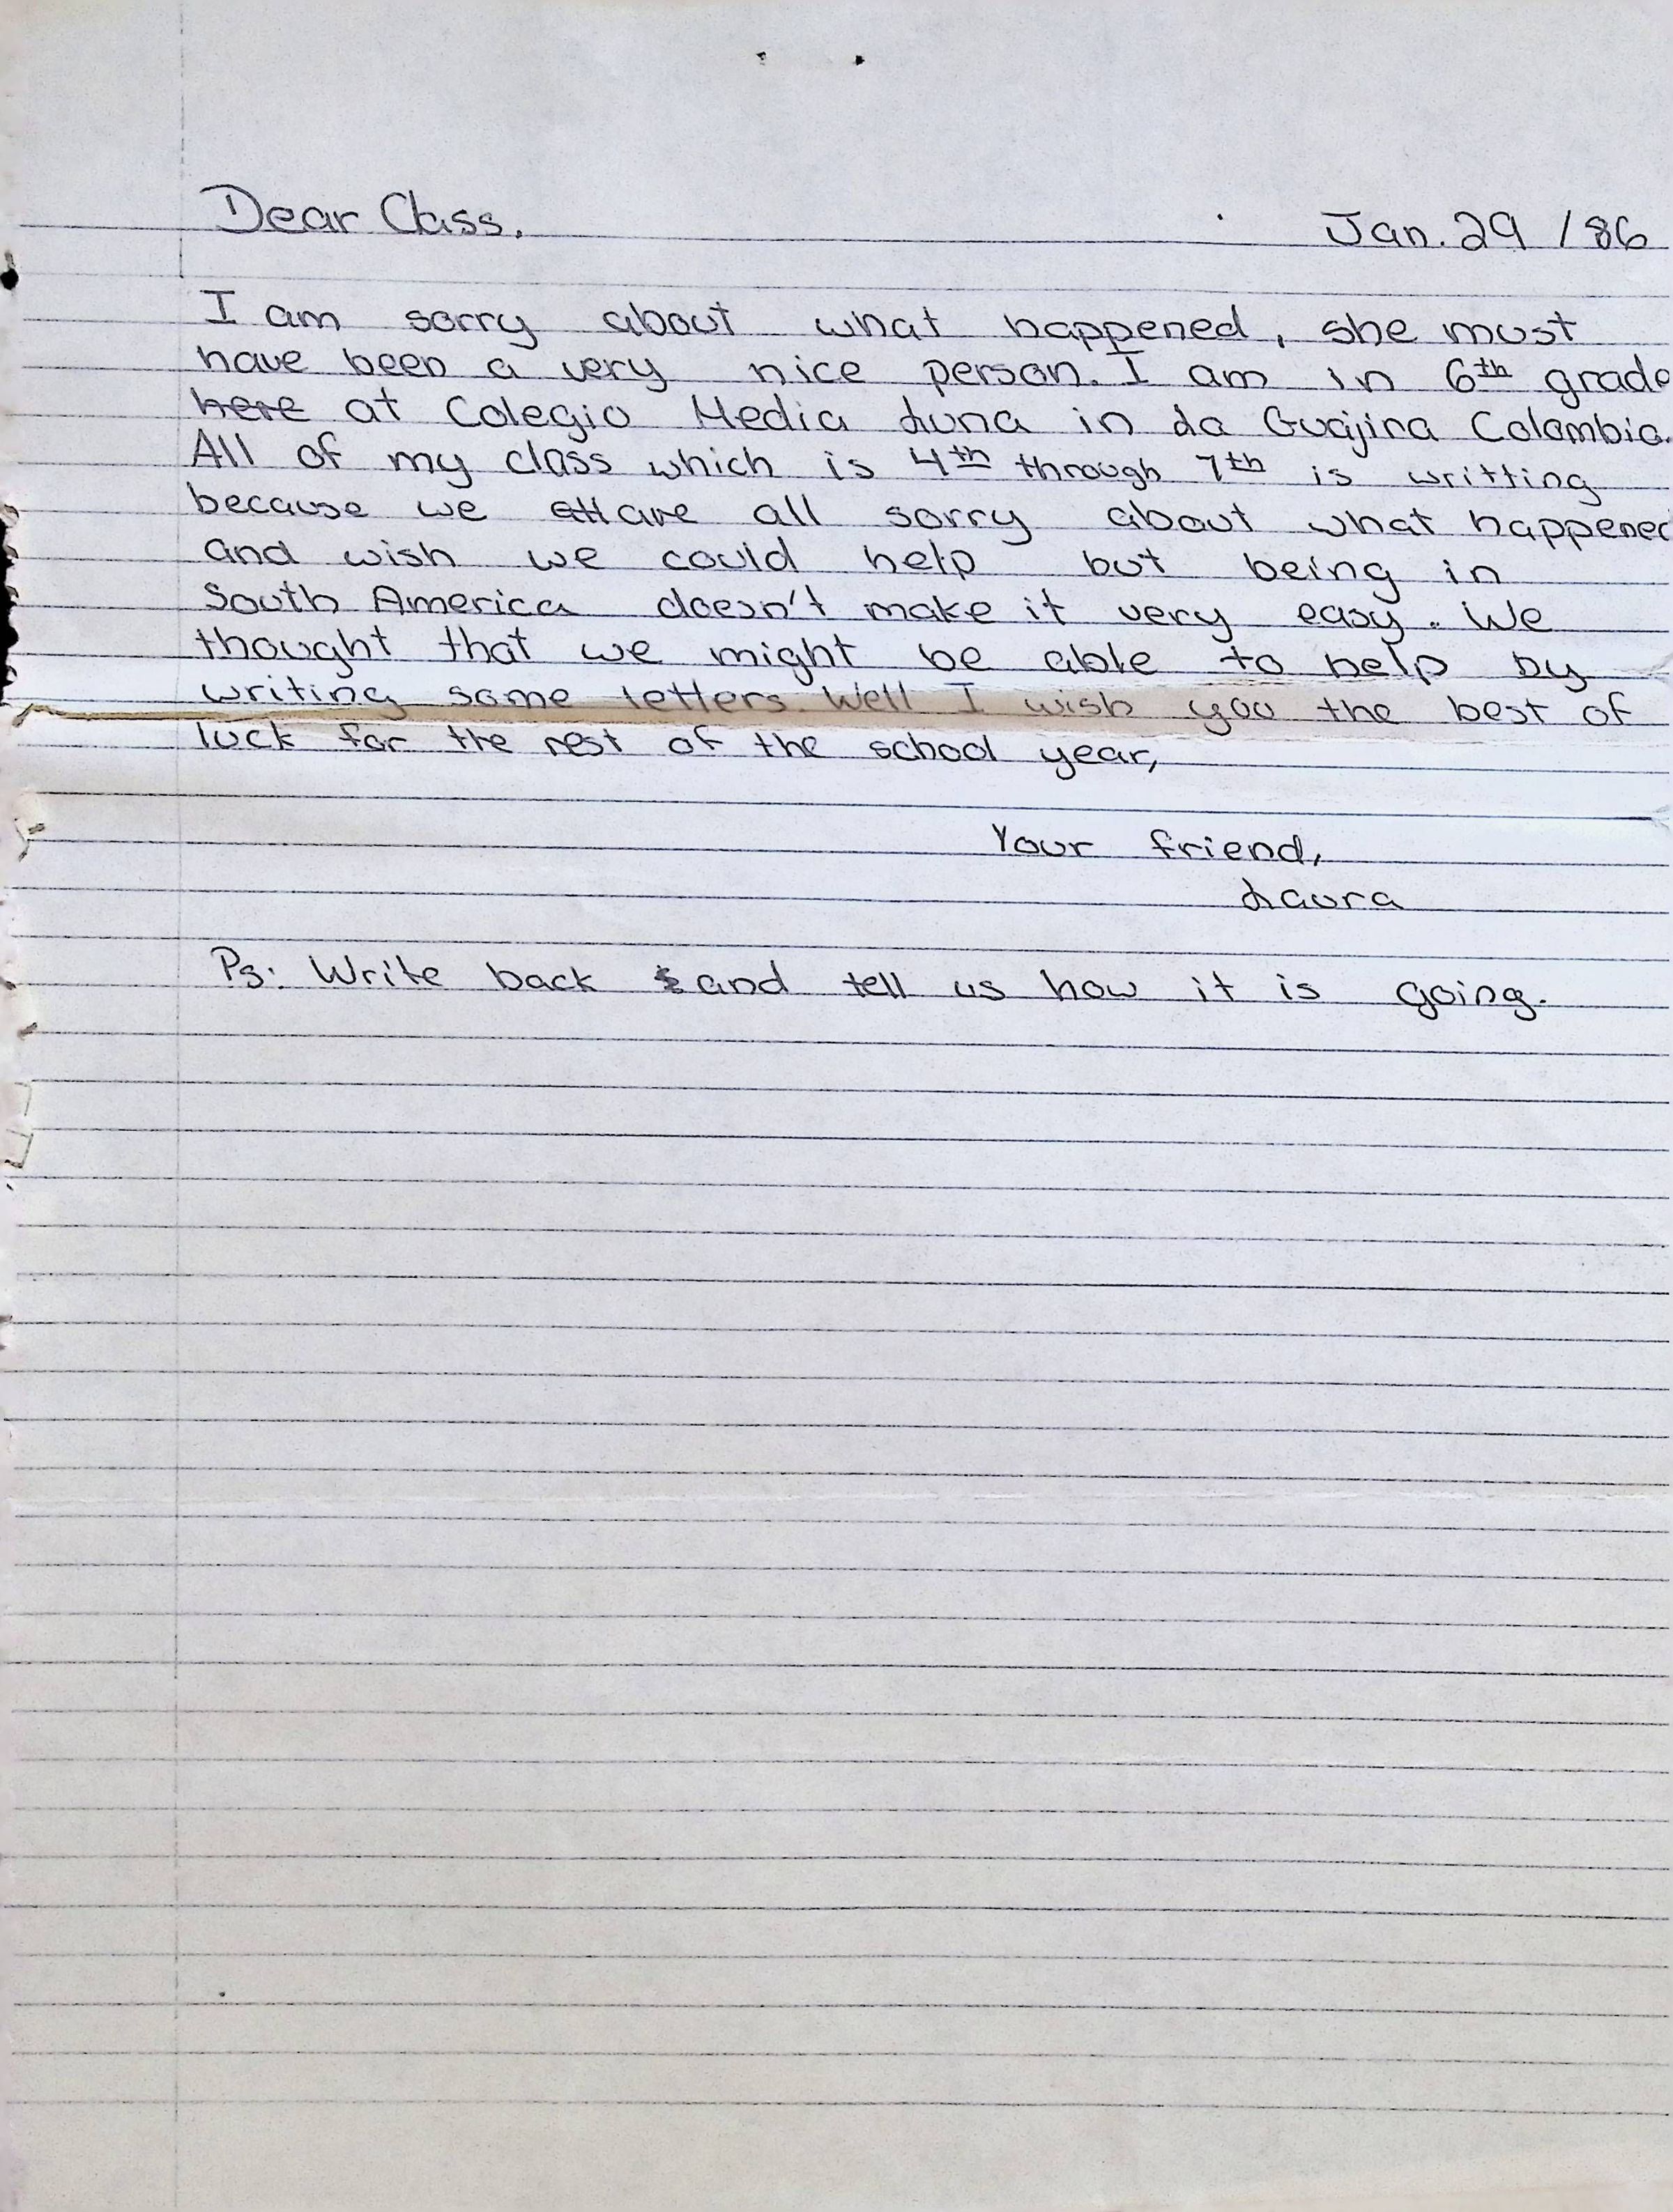 Dear Class,
Jan. 29 / 86
I am sorry about what happened, she must
have been a very nice person. I am in 6th grade
here at Colegio Media Luna in La Guajira Colombia.
All of my class which is 4th through 7th is writting
because we are all sorry about what happened
and wish we could help but being in
South America doesn't make it very easy. We
thought that we might be able to help by
writing some letters. Well I wish you the best of
luck for the rest of the school year,
Your friend,
Laura
Ps: Write back and tell us how it is going.